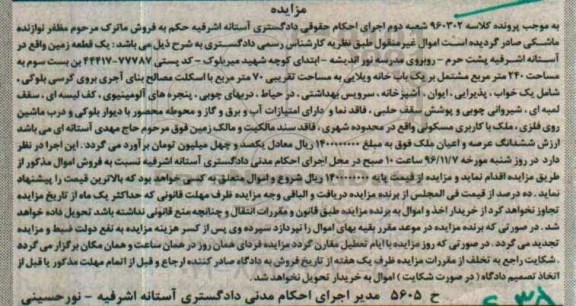 مزایده
به موجب پرونده کلاسه ۹۶۰۳۰۲ شعبه دوم اجرای احکام حقوقی دادگستری آستانه اشرفیه حکم به فروش ماترک مرحوم مظفر نوازنده
ماشکی صادر گردیده است اموال غیر منقول طبق نظریه کارشناس رسمی دادگستری به شرح ذیل می باشد: یک قطعه زمین واقع در
آستانه اشرفیه پشت حرم - روبروی مدرسه نور اندیشه - ابتدای کوچه شهید میربلوک - کد پستی ۷۷۷۸۷-۴۴۴۱۷ بن بست سوم به
مساحت ۲۴۰ متر مربع مشتمل بر یک باب خانه ویلایی به مساحت تقریبی ۷۰ متر مربع با اسکلت مصالح بنای آجری بروی کرسی بلوکی ،
شامل یک خواب ، پذیرایی ، ایوان ، آشپزخانه ، سرویس بهداشتی ، در حیاط ، دربهای چوبی ، پنجره های آلومینیوی ، کف لیسه ای ، سقف
لمبه ای ، شیروانی چوبی و پوشش سقف حلبی ، فاقد نما و دارای امتیازات آب و برق و گاز و محوطه محصور با دیوار بلوکی و درب ماشین
روی فلزی ، ملک با کاربری مسکونی واقع در محدوده شهری ، فاقد سند مالکیت و مالک زمین فوق مرحوم حاج مهدی آستانه ای می باشد
ارزش ششدانگ عرصه و اعیان ملک فوق به مبلغ ۱۴۰۰۰۰۰۰۰ ریال معادل یکصد و چهل میلیون تومان برآورد می گردد . این اجرا در نظر
دارد در روز شنبه مورخه ۹۶/۱۱/۷ ساعت ۱۰ صبح در محل اجرای احکام مدنی دادگستری آستانه اشرفیه نسبت به فروش اموال مذکور از
طریق مزایده اقدام نماید و مزایده از قیمت پایه ۱۴۰۰۰۰۰۰۰۰ ریال شروع و اموال متعلق به کسی خواهد بود که بالاترین قیمت را پیشنهاد
نماید . ده درصد از قیمت فی المجلس از برنده مزایده دریافت و الباقی وجه مزایده ظرف مهلت قانونی که حداکثر یک ماه از تاریخ مزایده
تجاوز نخواهد کرد از خریدار اخذ و اموال به برنده مزایده طبق قانون و مقررات انتقال و چنانچه منع قانونی نداشته باشد تحویل داده خواهد
شد . در صورتی که برنده مزایده در موعد مقرر بقیه بهای اموال را نپردازد سپرده وی پس از کسر هزینه مزایده به نفع دولت ضبط و مزایده
تجدید می گردد . در صورتی که روز مزایده با ایام تعطیل مقارن گردد مزایده فردای همان روز در همان ساعت و همان مکان برگزار می گردد
. شکایت راجع به تخلف از مقررات مزایده ظرف یک هفته از تاریخ فروش به دادگاه صادر کننده ارجاع و قبل از اتمام مهلت مذکور یا قبل از
اتخاذ تصمیم دادگاه ( در صورت شکایت ) اموال به خریدار تحویل نخواهد شد.
ح ۵۶۰۵ مدیر اجرای احکام مدنی دادگستری آستانه اشرفیه - نورحسینی